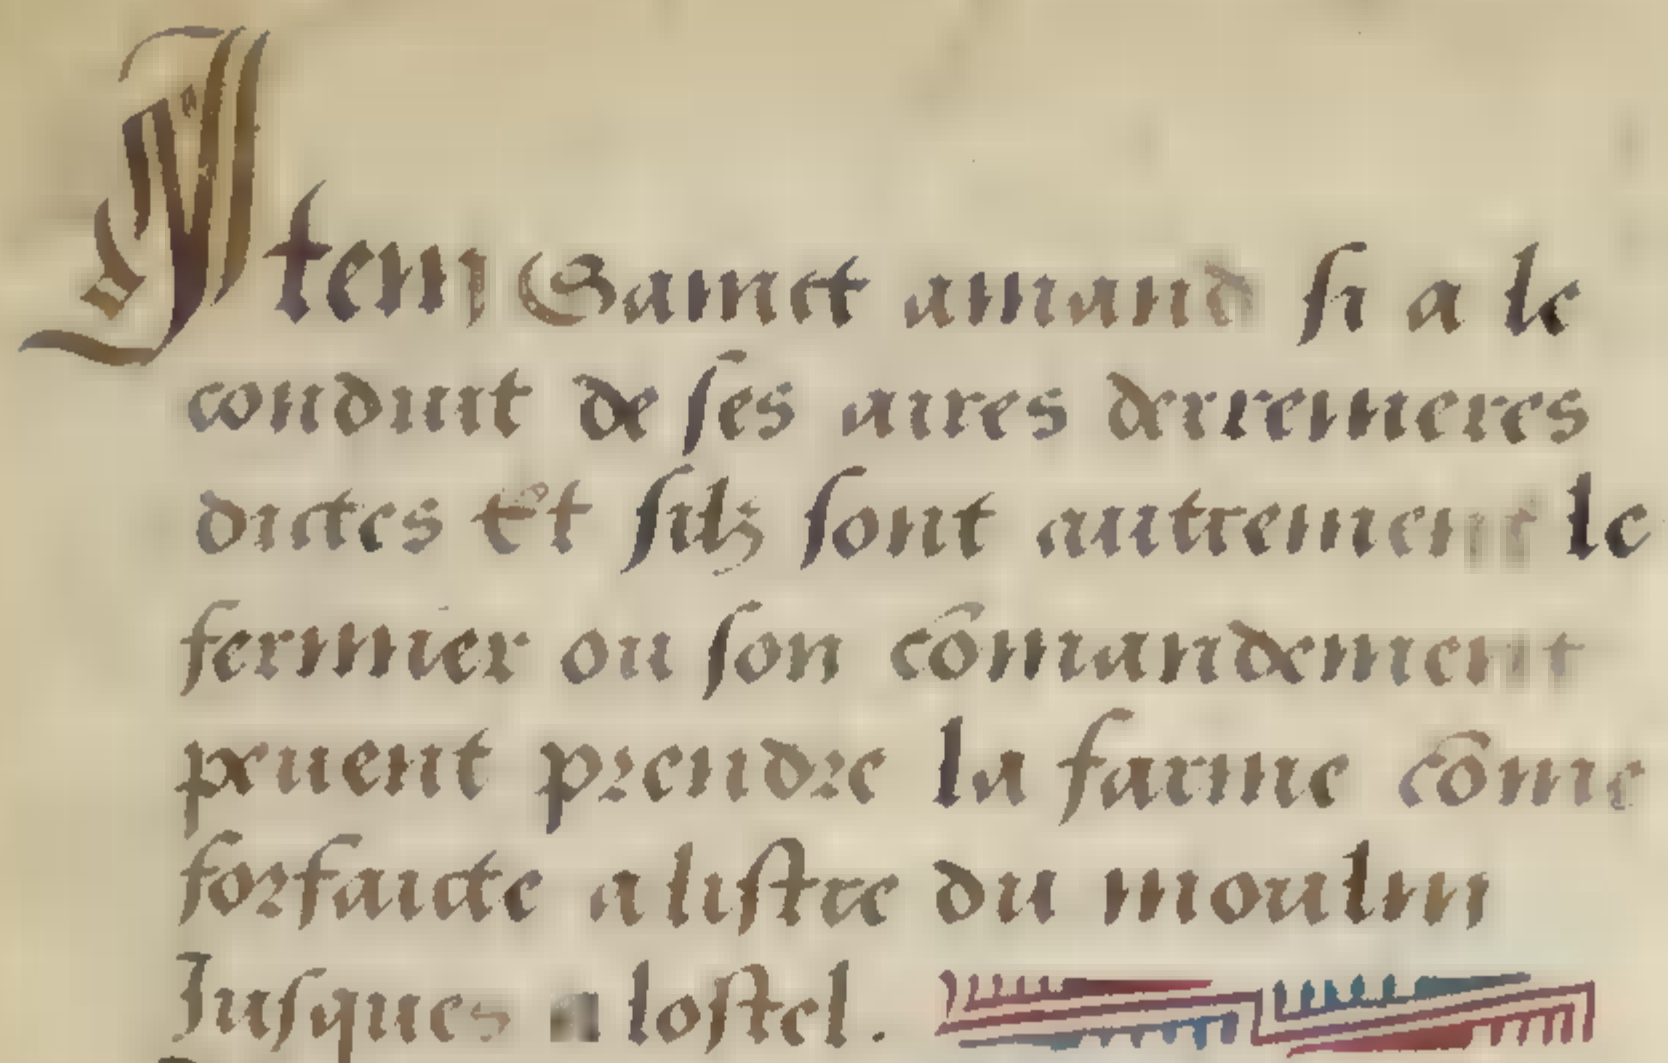 Item Sainct amand si a le
conduit de ses aires derreineres
dictes Et silz sont autrement le
fermier ou son cōmandement
peuent prendre la farine cōme
forfaicte a listre du moulin
Jusques a lostel.